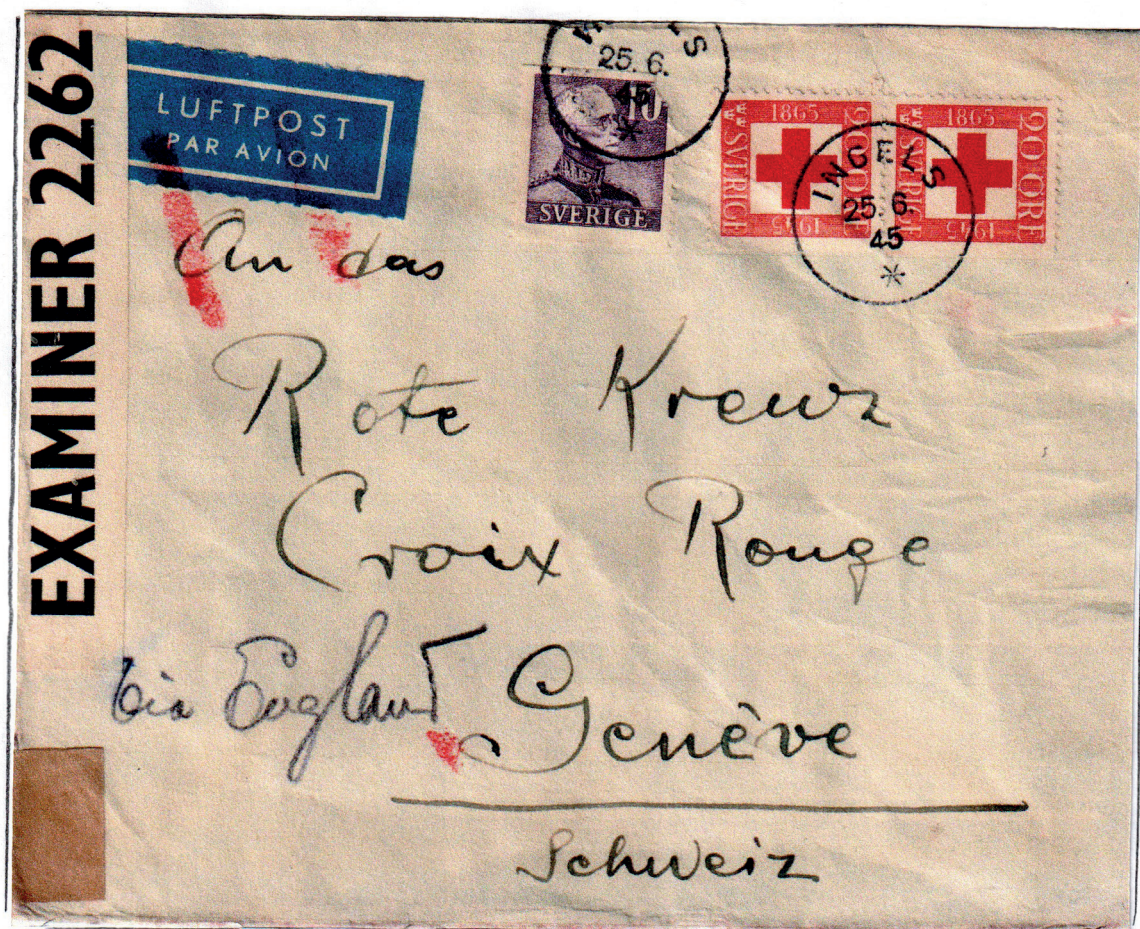 EXAMINER 2262
LUFTPOST
PAR AVION
25.6.
45
*
10
SVERIGE
1865
20 ÖRE
SVERIGE
1945
1865
20 ÖRE
SVERIGE
1945
INGELS
25.6.
45
*
An das
Rote Kreuz
Croix Rouge
via England
Genève
Schweiz